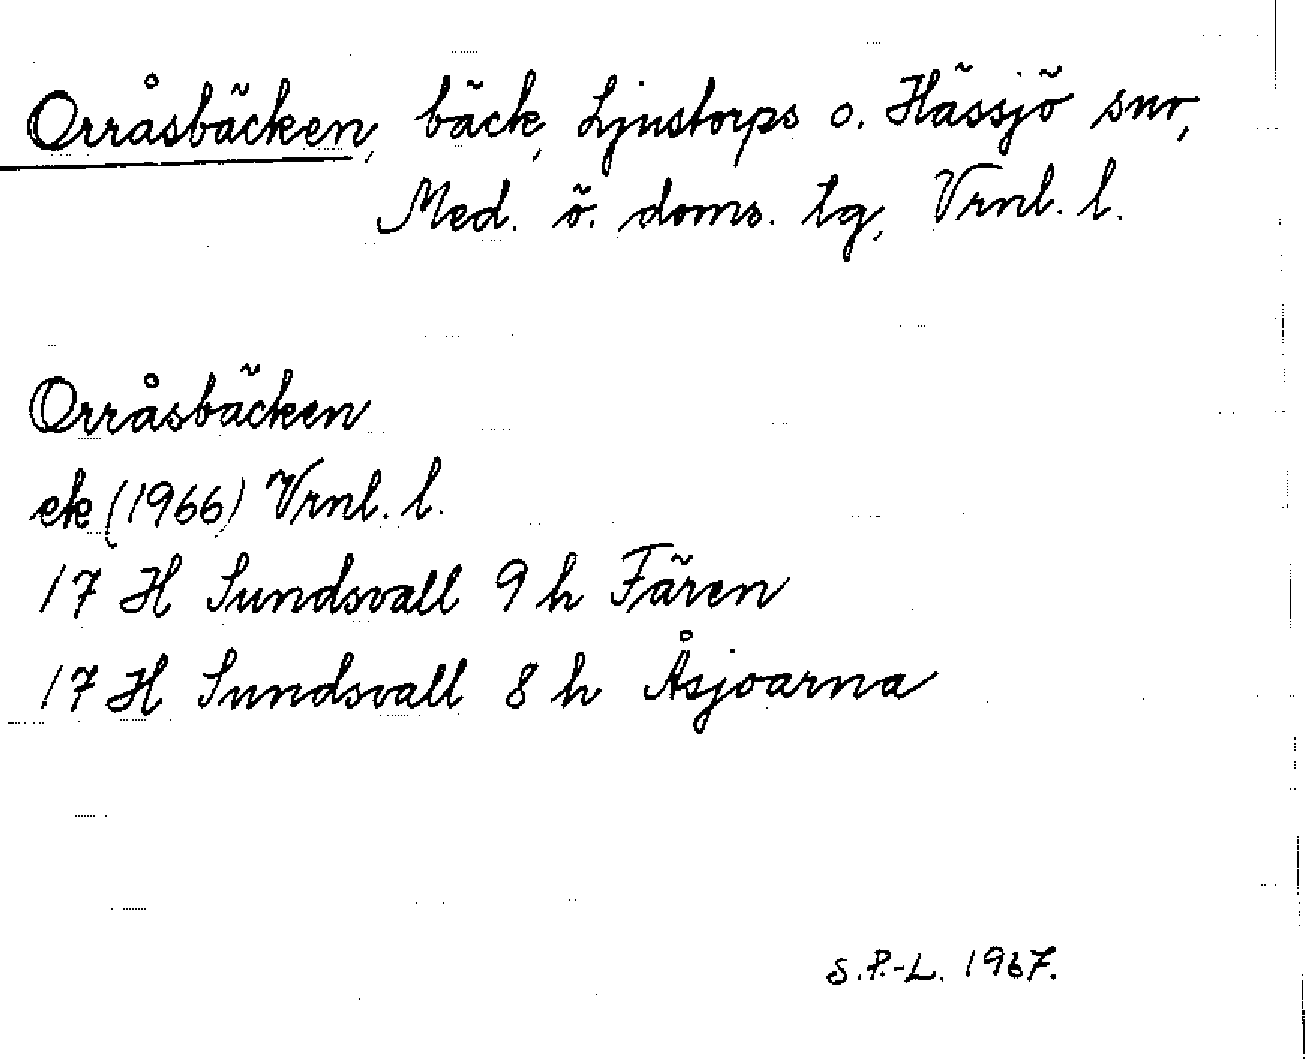 Orråsbäcken, bäck, Ljustorps o. Hässjö snr,
Med. ö. doms. tg, Vrnl. l.
Orråsbäcken
ek (1966) Vrnl. l.
17 H Sundsvall 9 h Fären
17 H Sundsvall 8 h Åsjoarna
S.P.-L. 1967.